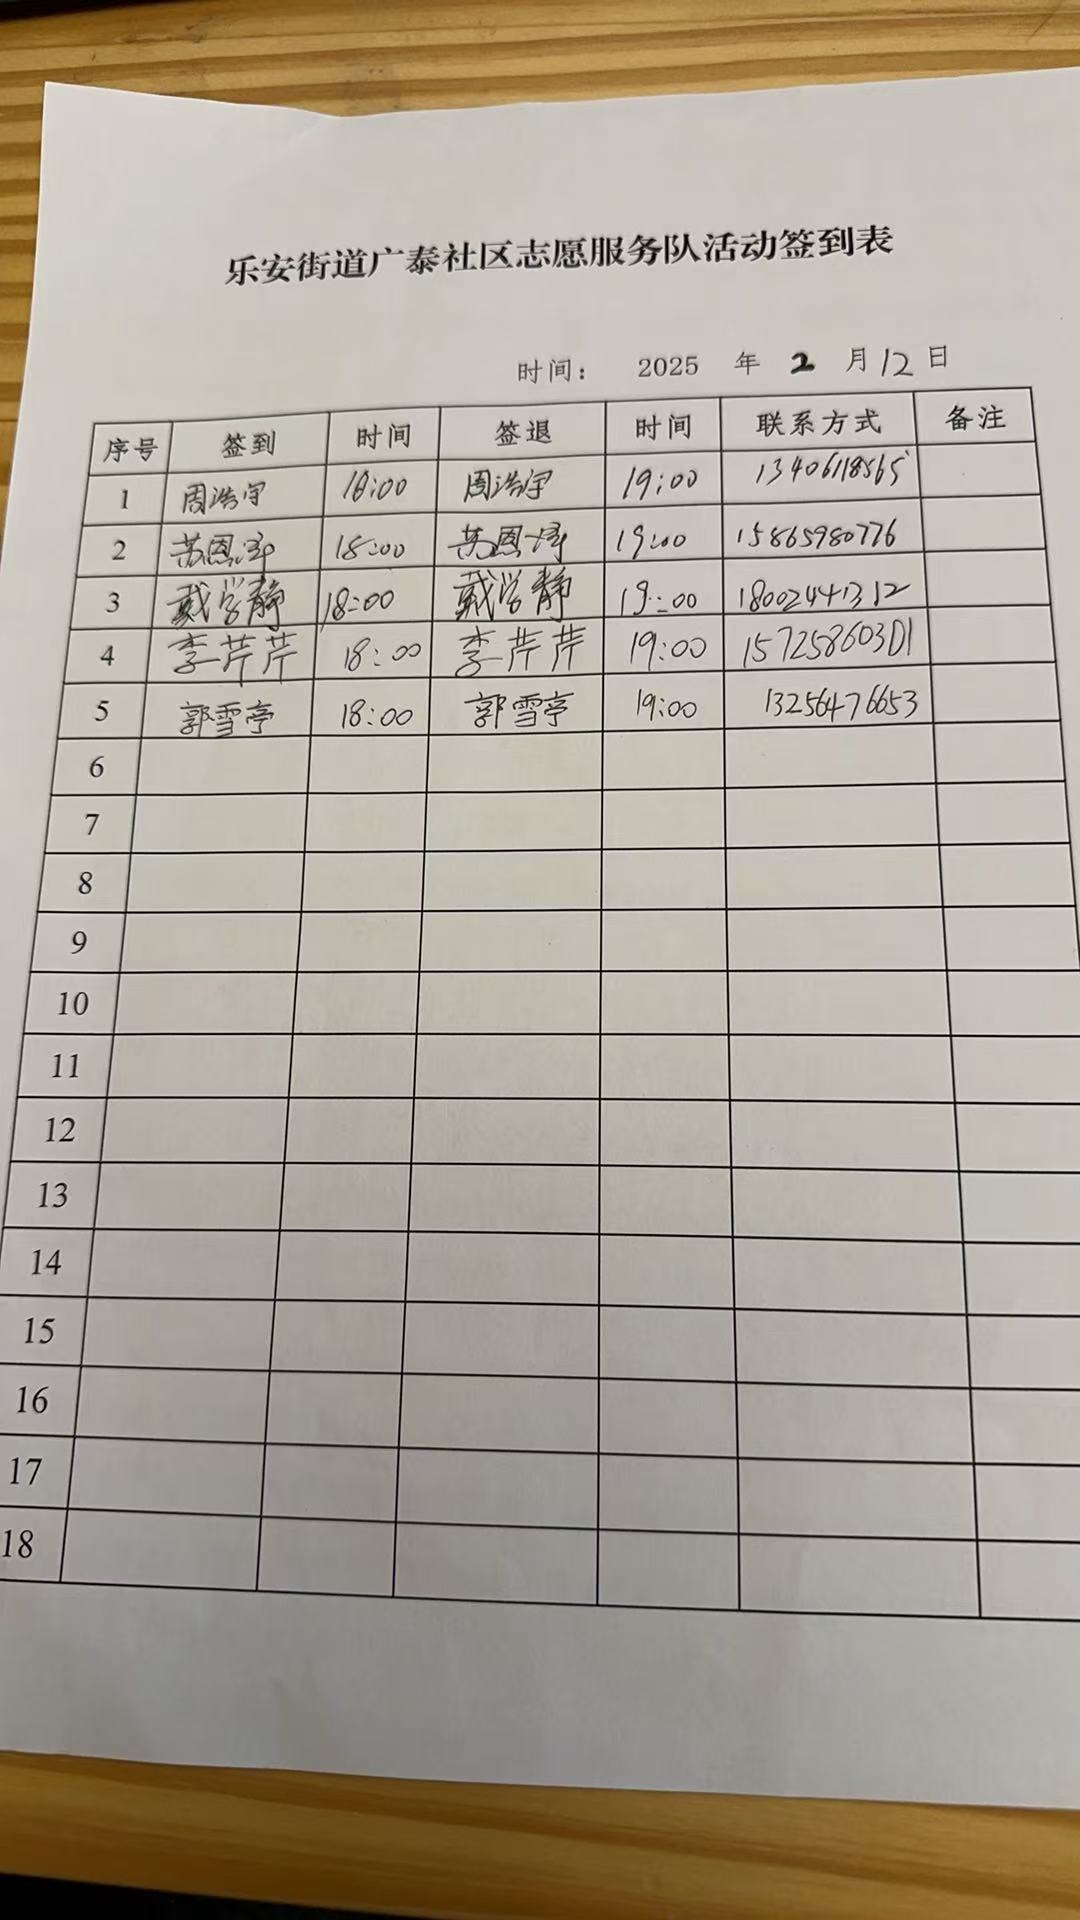 乐安街道广泰社区志愿服务队活动签到表
时间： 2025 年 2 月 12 日
序号 签到 时间 签退 时间 联系方式 备注
1 周浩宇 18:00 周浩宇 19:00 13406118565
2 苏恩泽 18:00 苏恩泽 19:00 15865980776
3 戴学静 18:00 戴学静 19:00 18002441312
4 李芹芹 18:00 李芹芹 19:00 15725860301
5 郭雪亭 18:00 郭雪亭 19:00 13256476653
6
7
8
9
10
11
12
13
14
15
16
17
18